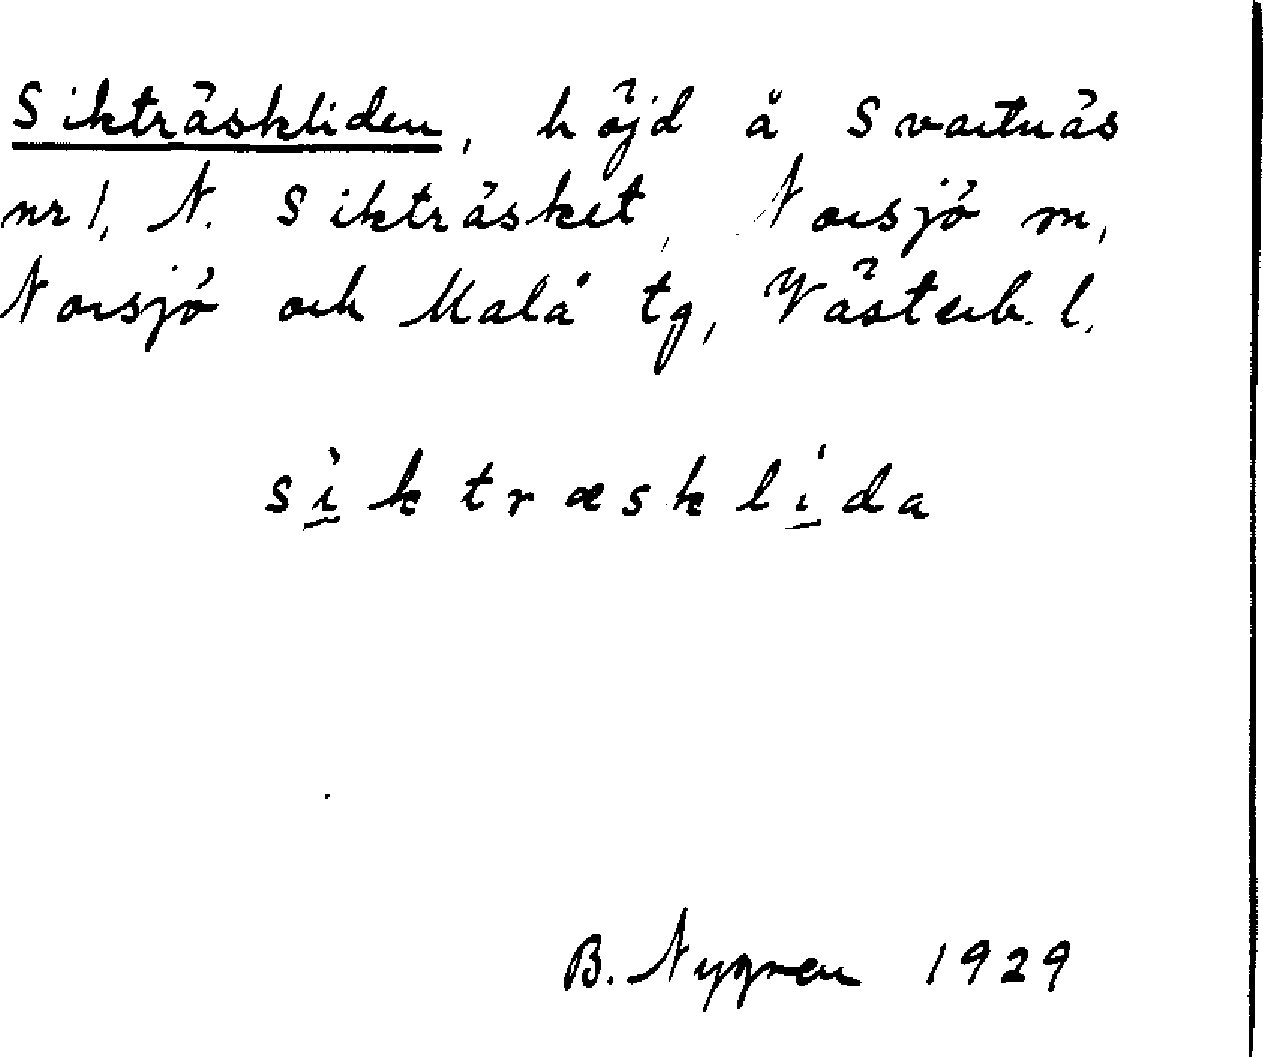 Sikträskliden, höjd å Svartnäs
nr 1, N. Sikträsket, Norsjö m,
Norsjö och Malå tg, Västerb. l.
sì̱ktræsklí̱da
B. Nygren 1929